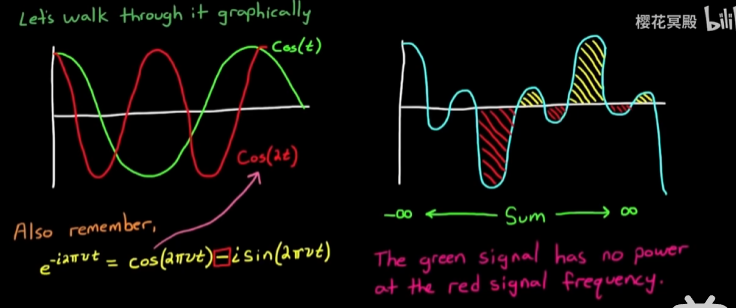 Let's walk through it graphically
Cos(t)
Cos(2t)
Also remember,
e^{-i2πνt} = cos(2πνt) - i sin(2πνt)
樱花冥殿 bili
-∞ ← Sum → ∞
The green signal has no power
at the red signal frequency.